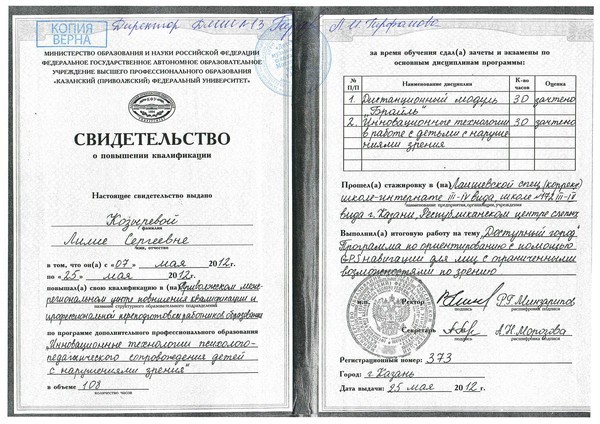 КОПИЯ ВЕРНА
Директор ДМШ №13
МИНИСТЕРСТВО ОБРАЗОВАНИЯ И НАУКИ РОССИЙСКОЙ ФЕДЕРАЦИИ
ФЕДЕРАЛЬНОЕ ГОСУДАРСТВЕННОЕ АВТОНОМНОЕ ОБРАЗОВАТЕЛЬНОЕ
УЧРЕЖДЕНИЕ ВЫСШЕГО ПРОФЕССИОНАЛЬНОГО ОБРАЗОВАНИЯ
«КАЗАНСКИЙ (ПРИВОЛЖСКИЙ) ФЕДЕРАЛЬНЫЙ УНИВЕРСИТЕТ»
СВИДЕТЕЛЬСТВО
о повышении квалификации
Настоящее свидетельство выдано
Козыревой
фамилия
Лилие Сергеевне
имя, отчество
в том, что он(а) с «07» мая 2012 г.
по «25» мая 2012 г.
повышал(а) свою квалификацию в (на) Приволжском меж-
региональном центре повышения квалификации и
название структурного образовательного подразделения
профессиональной переподготовки работников образования
по программе дополнительного профессионального образования
"Инновационные технологии психолого-
педагогического сопровождения детей
с нарушениями зрения"
в объеме 108
количество часов
за время обучения сдал(а) зачеты и экзамены по
основным дисциплинам программы:
№ П/П Наименование дисциплин К-во часов Оценка
1. Дистанционный модуль "Брайль" 30 зачтено
2. Инновационные технологии в работе с детьми с нарушениями зрения 30 зачтено
Прошел(а) стажировку в (на) Лаишевской спец (коррекц)
школе-интернате III-IV вида, школе №172 III-IV
наименование предприятия, организации, учреждения
вида г. Казани, Республиканском центре слепых
Выполнил(а) итоговую работу на тему "Доступный город"
Программа по ориентированию с помощью
GPS навигации для лиц с ограниченными
возможностями по зрению
м.п. Ректор Р.Г. Минзарипов
подпись расшифровка подписи
Секретарь
подпись расшифровка подписи
Регистрационный номер: 373
Город: г. Казань
Дата выдачи: 25 мая 2012 г.